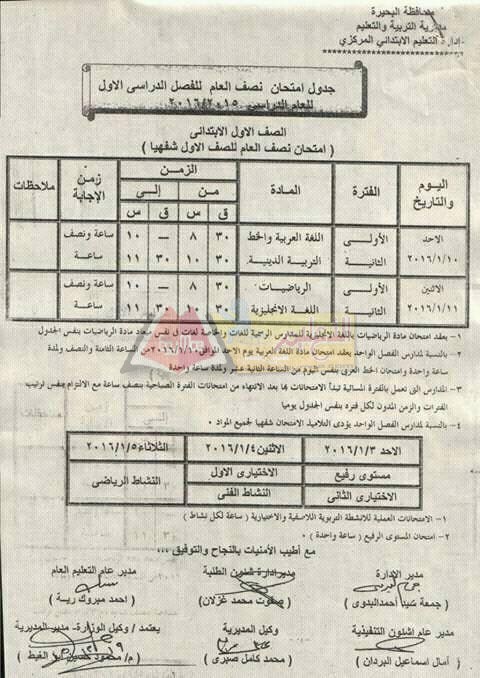 محافظة البحيرة
مديرية التربية والتعليم
إدارة التعليم الابتدائي المركزي
جدول امتحان نصف العام للفصل الدراسى الاول
للعام الدراسى ٢٠١٦/٢٠١٥
الصف الاول الابتدائى
( امتحان نصف العام للصف الاول شفهيا )
اليوم والتاريخ الفترة المادة الزمن زمن الإجابة ملاحظات
من إلى
ق س ق س
الاحد ٢٠١٦/١/١٠ الأولى اللغة العربية والخط ٣٠ ٨ — ١٠ ساعة ونصف
الثانية التربية الدينية ٣٠ ١٠ ٣٠ ١١ ساعة
الاثنين ٢٠١٦/١/١١ الأولى الرياضيات ٣٠ ٨ — ١٠ ساعة ونصف
الثانية اللغة الانجليزية ٣٠ ١٠ ٣٠ ١١ ساعة
١- يعقد امتحان مادة الرياضيات باللغة الانجليزية للمدارس الرسمية للغات والخاصة لغات فى نفس ميعاد مادة الرياضيات بنفس الجدول
٢- بالنسبة لمدارس الفصل الواحد يعقد امتحان مادة اللغة العربية يوم الاحد الموافق ٢٠١٦/١/١٠ من الساعة الثامنة والنصف ولمدة
ساعة واحدة وامتحان الخط العربى بنفس اليوم من الساعة الثانية عشر ولمدة ساعة واحدة
٣- المدارس التى تعمل بالفترة المسائية تبدأ الامتحانات بها بعد الانتهاء من امتحانات الفترة الصباحية بنصف ساعة مع الالتزام بنفس ترتيب
الفترات والزمن المدون لكل فتره بنفس الجدول يوميا
٤- بالنسبة لمدارس الفصل الواحد يؤدى التلاميذ الامتحان شفهيا لجميع المواد
الاحد ٢٠١٦/١/٣ الاثنين ٢٠١٦/١/٤ الثلاثاء ٢٠١٦/١/٥
مستوى رفيع الاختيارى الاول النشاط الرياضى
الاختيارى الثانى النشاط الفنى
١- الامتحانات العملية للانشطة التربوية اللاصفية والاختيارية ( ساعة لكل نشاط )
٢- امتحان المستوى الرفيع ( ساعة واحدة )
مع اطيب الأمنيات بالنجاح والتوفيق ...
مدير الإدارة مدير ادارة شئون الطلبة مدير عام التعليم العام
( جمعة سيد احمد البدوى ) ( صفوت محمد غزلان ) ( احمد مبروك رية )
مدير عام الشئون التنفيذية وكيل المديرية يعتمد / وكيل الوزارة - مدير المديرية
( آمال اسماعيل البردان ) ( محمد كامل صبرى ) ( م/ محمود حسين ابو الغيط )